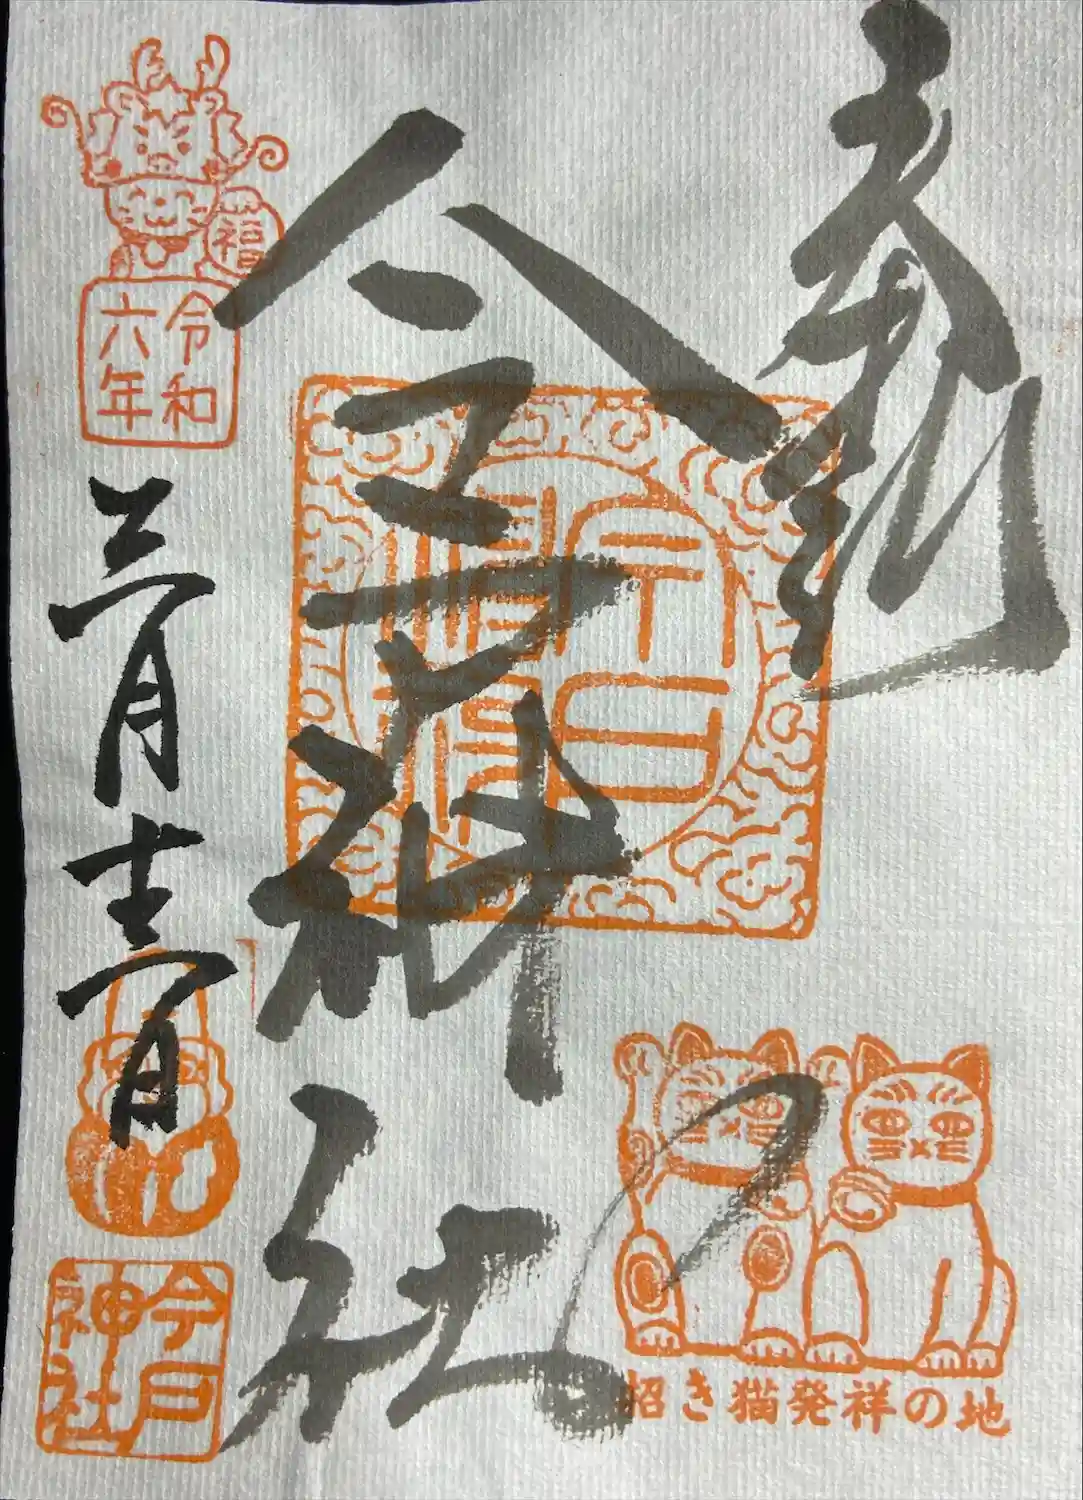 奉拝
今戸神社
福
令和
六年
三月
今戸
神社
招き猫発祥の地